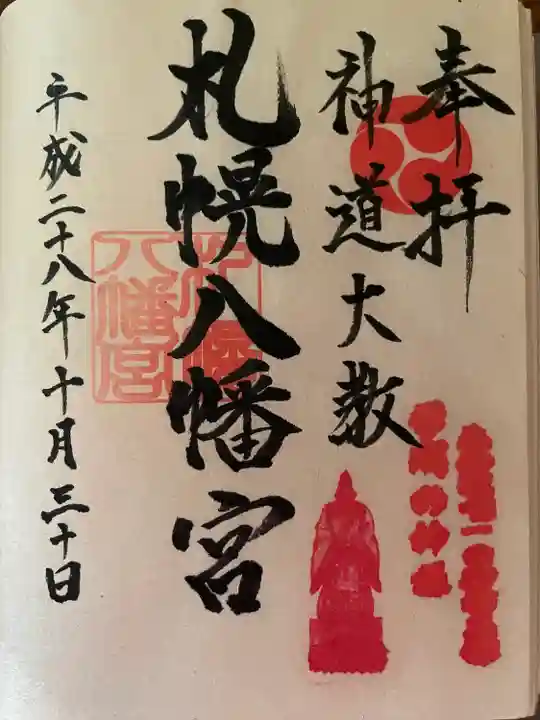 奉拝
神道大教
札幌八幡宮
平成二十八年十月三十日
札幌
八幡宮